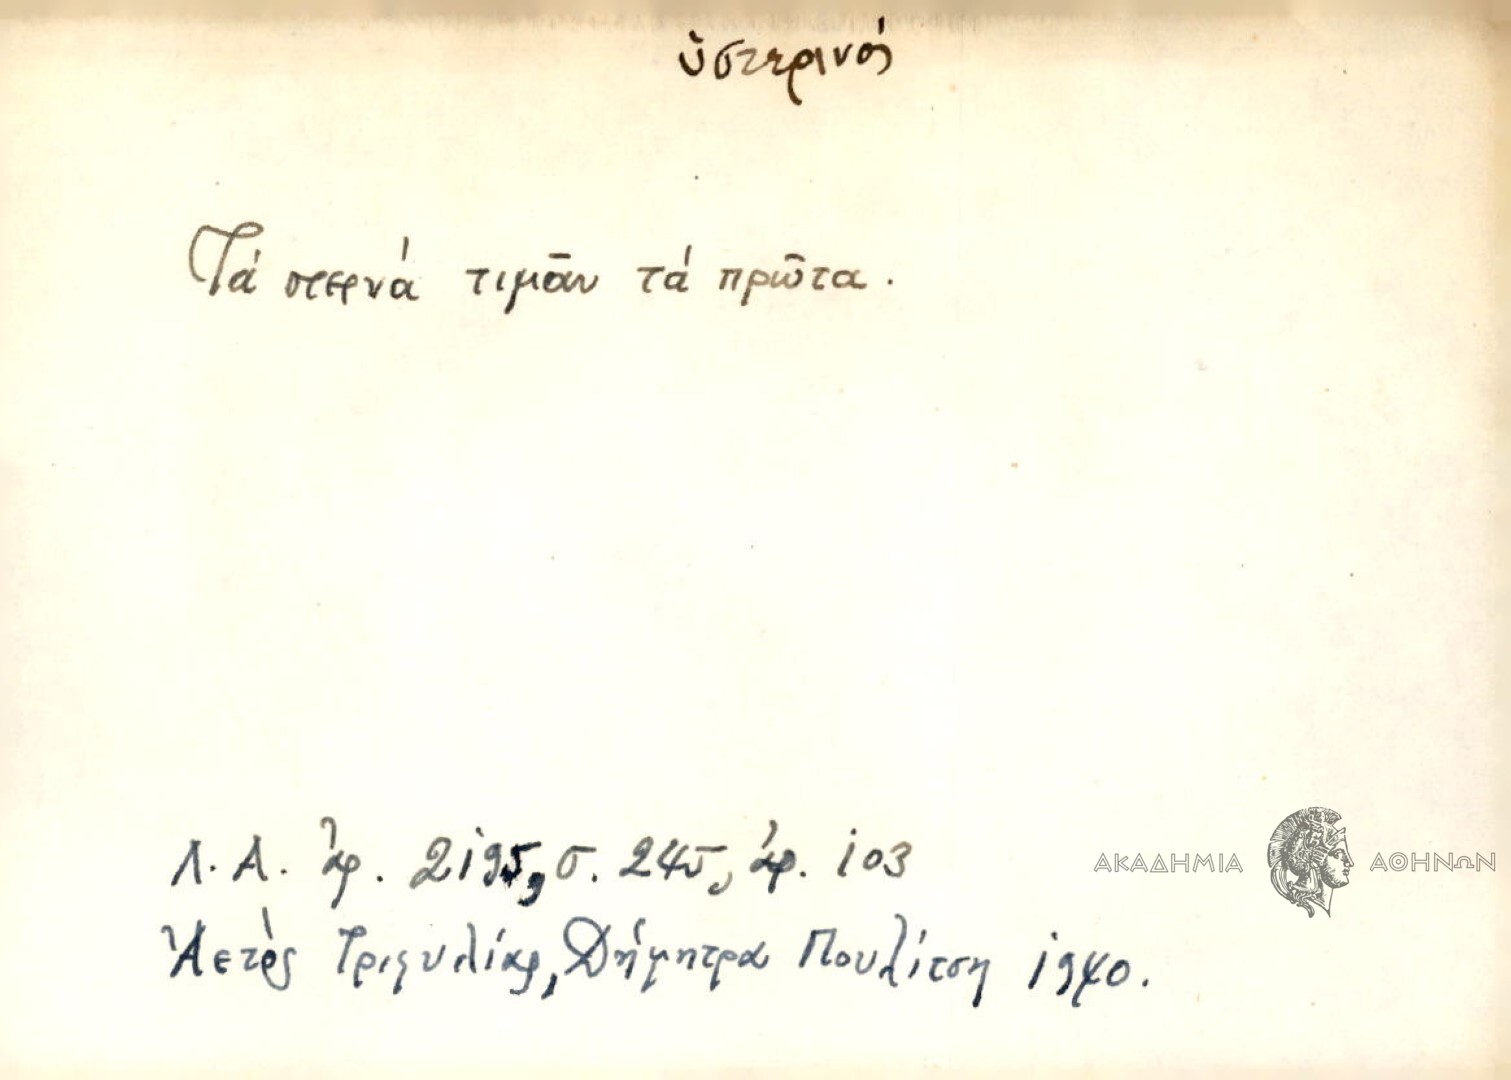 ὑστερινός
Τά στερνά τιμᾶν τά πρῶτα.
Λ. Α. ἀρ. 2195, σ. 245, ἀρ. 103
Ἀετὸς Τριφυλίας, Δήμητρα Πουλίτση 1940.
ΑΚΑΔΗΜΙΑ ΑΘΗΝΩΝ